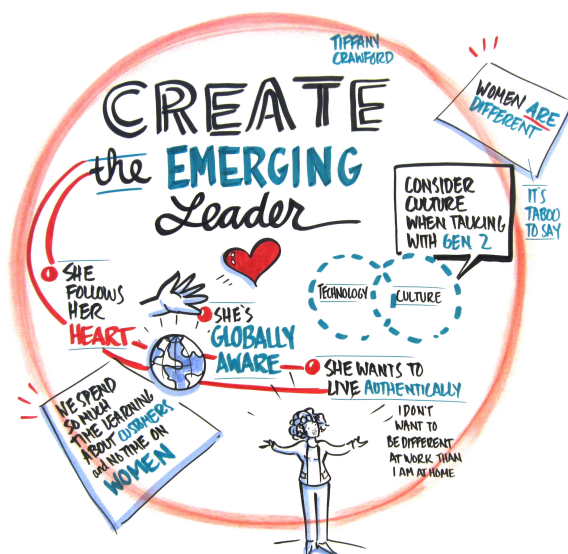 TIFFANY
CRAWFORD
CREATE
the EMERGING
Leader
WOMEN ARE
DIFFERENT
IT'S
TABOO
TO SAY
CONSIDER
CULTURE
WHEN TALKING
WITH GEN Z
TECHNOLOGY
CULTURE
SHE
FOLLOWS
HER
HEART
SHE'S
GLOBALLY
AWARE
SHE WANTS TO
LIVE AUTHENTICALLY
I DON'T
WANT TO
BE DIFFERENT
AT WORK THAN
I AM AT HOME
WE SPEND
SO MUCH
TIME LEARNING
ABOUT CUSTOMERS
and NO TIME ON
WOMEN